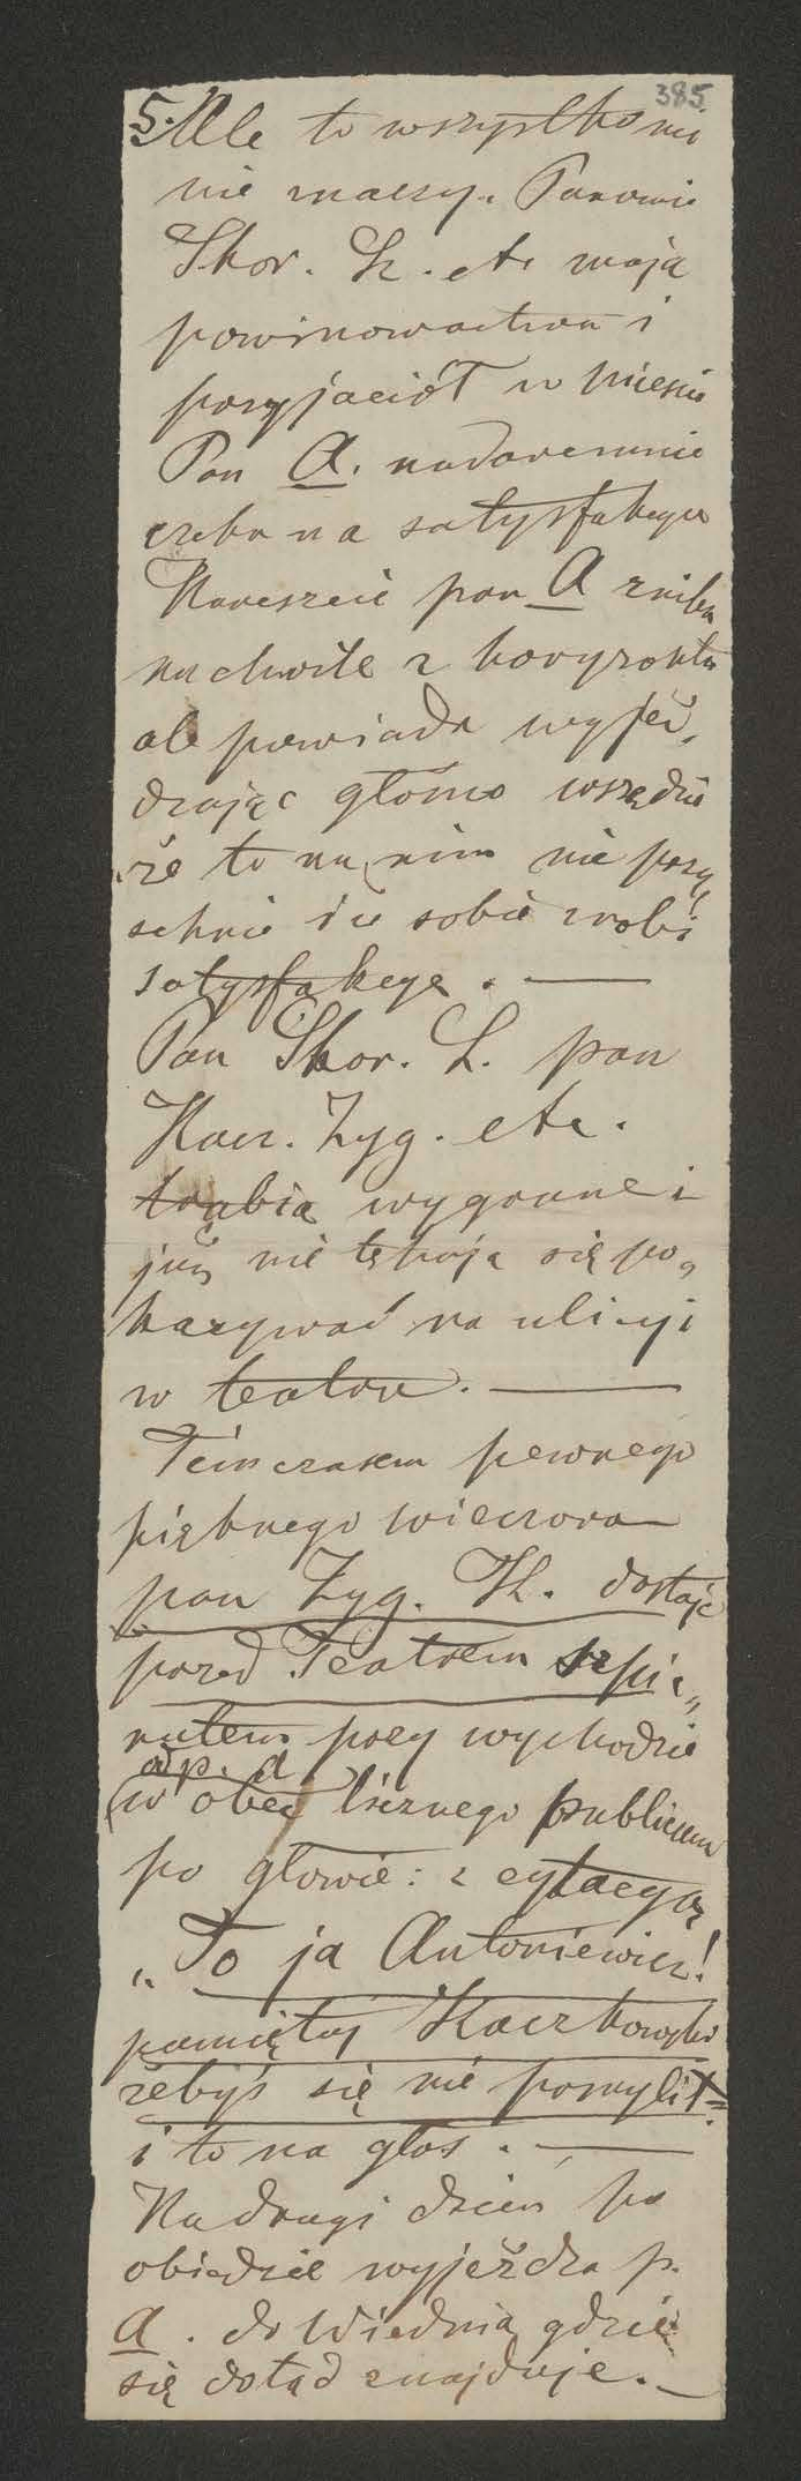 385
5. Ale to wszystko nic
nie znaczy. Panowie
Skor. L. etc mają
powinowactwa i
przyjaciół w mieście
Pan A. nadaremnie
czeka na satysfakcyą
Nareszcie pan A znika
na chwile z horyzontu
ale powiada wyjeż„
dzając głośno wszędzie
że to na nim nie przy„
schnie i że sobie zrobi
satysfakcye. —
Pan Skor. L. pan
Kacz. Zyg. etc.
trąbią wygrane i
już nie lękają się po„
kazywać na ulicy i
w teatrze. —
Témczasem pewnego
pięknego wieczora
pan Zyg. K. dostaje
przed Teatrem szpic„
rutem przy wychodzie
od p. A
(w obec licznego publicum
po głowie: z cytacyą
„To ja Antoniewicz!
pamiętaj Kaczkowski
żebyś się nie pomylił"
i to na głos. —
Na drugi dzień po
obiedzie wyjeżdża p.
A. do Wiednia gdzie
się dotąd znajduje. —